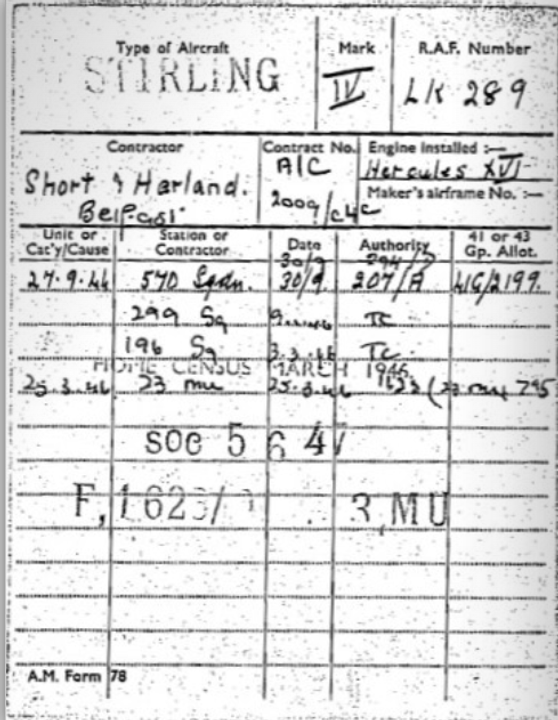 Type of Aircraft Mark R.A.F. Number
STIRLING IV LK 289
Contractor Contract No. Engine Installed :—
Short & Harland. A/C Hercules XVI
Belfast 2009/C4C Maker's airframe No. :—
Unit or Station or Date Authority 41 or 43
Cat'y/Cause Contractor Gp. Allot.
30/9
27.9.44 570 Sqdn. 30/9. 207/A 41G/2199.
299 Sq TC
196 Sq 3.3.46 TC
HOME CENSUS MARCH 1946
25.3.46 23 mu 25.3.46
SOC 5 6 47
F,1623/ 3,MU
A.M. Form 78